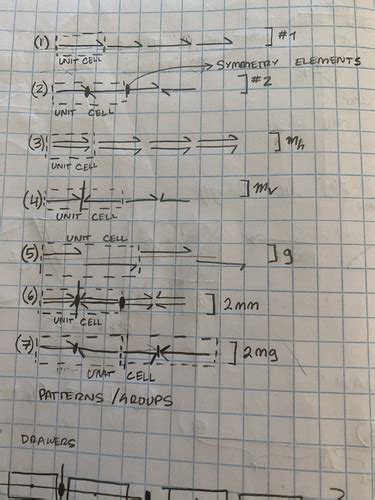 (1) ] #1
UNIT CELL
→ SYMMETRY ELEMENTS
(2) ] #2
UNIT CELL
(3) ] mh
UNIT CELL
(4) ] mv
UNIT CELL
UNIT CELL
(5) ] g
(6) ] 2mm
UNIT CELL
(7) ] 2mg
UNIT CELL
PATTERNS / GROUPS
DRAWERS